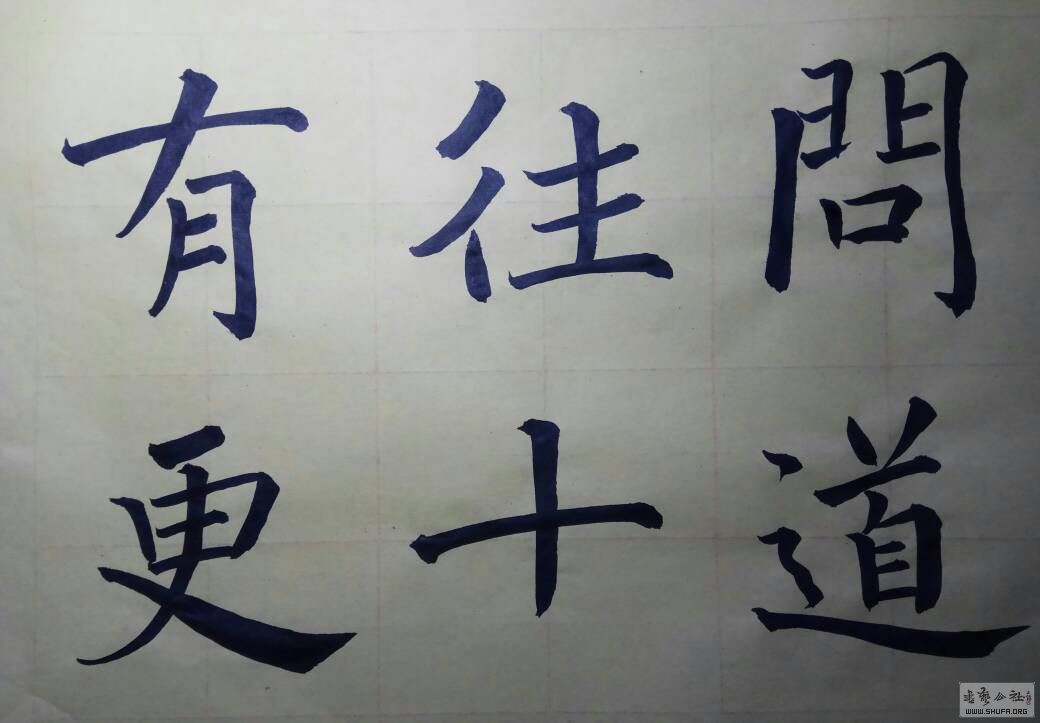 問道
往十
有更
書藝公社
WWW.SHUFA.ORG